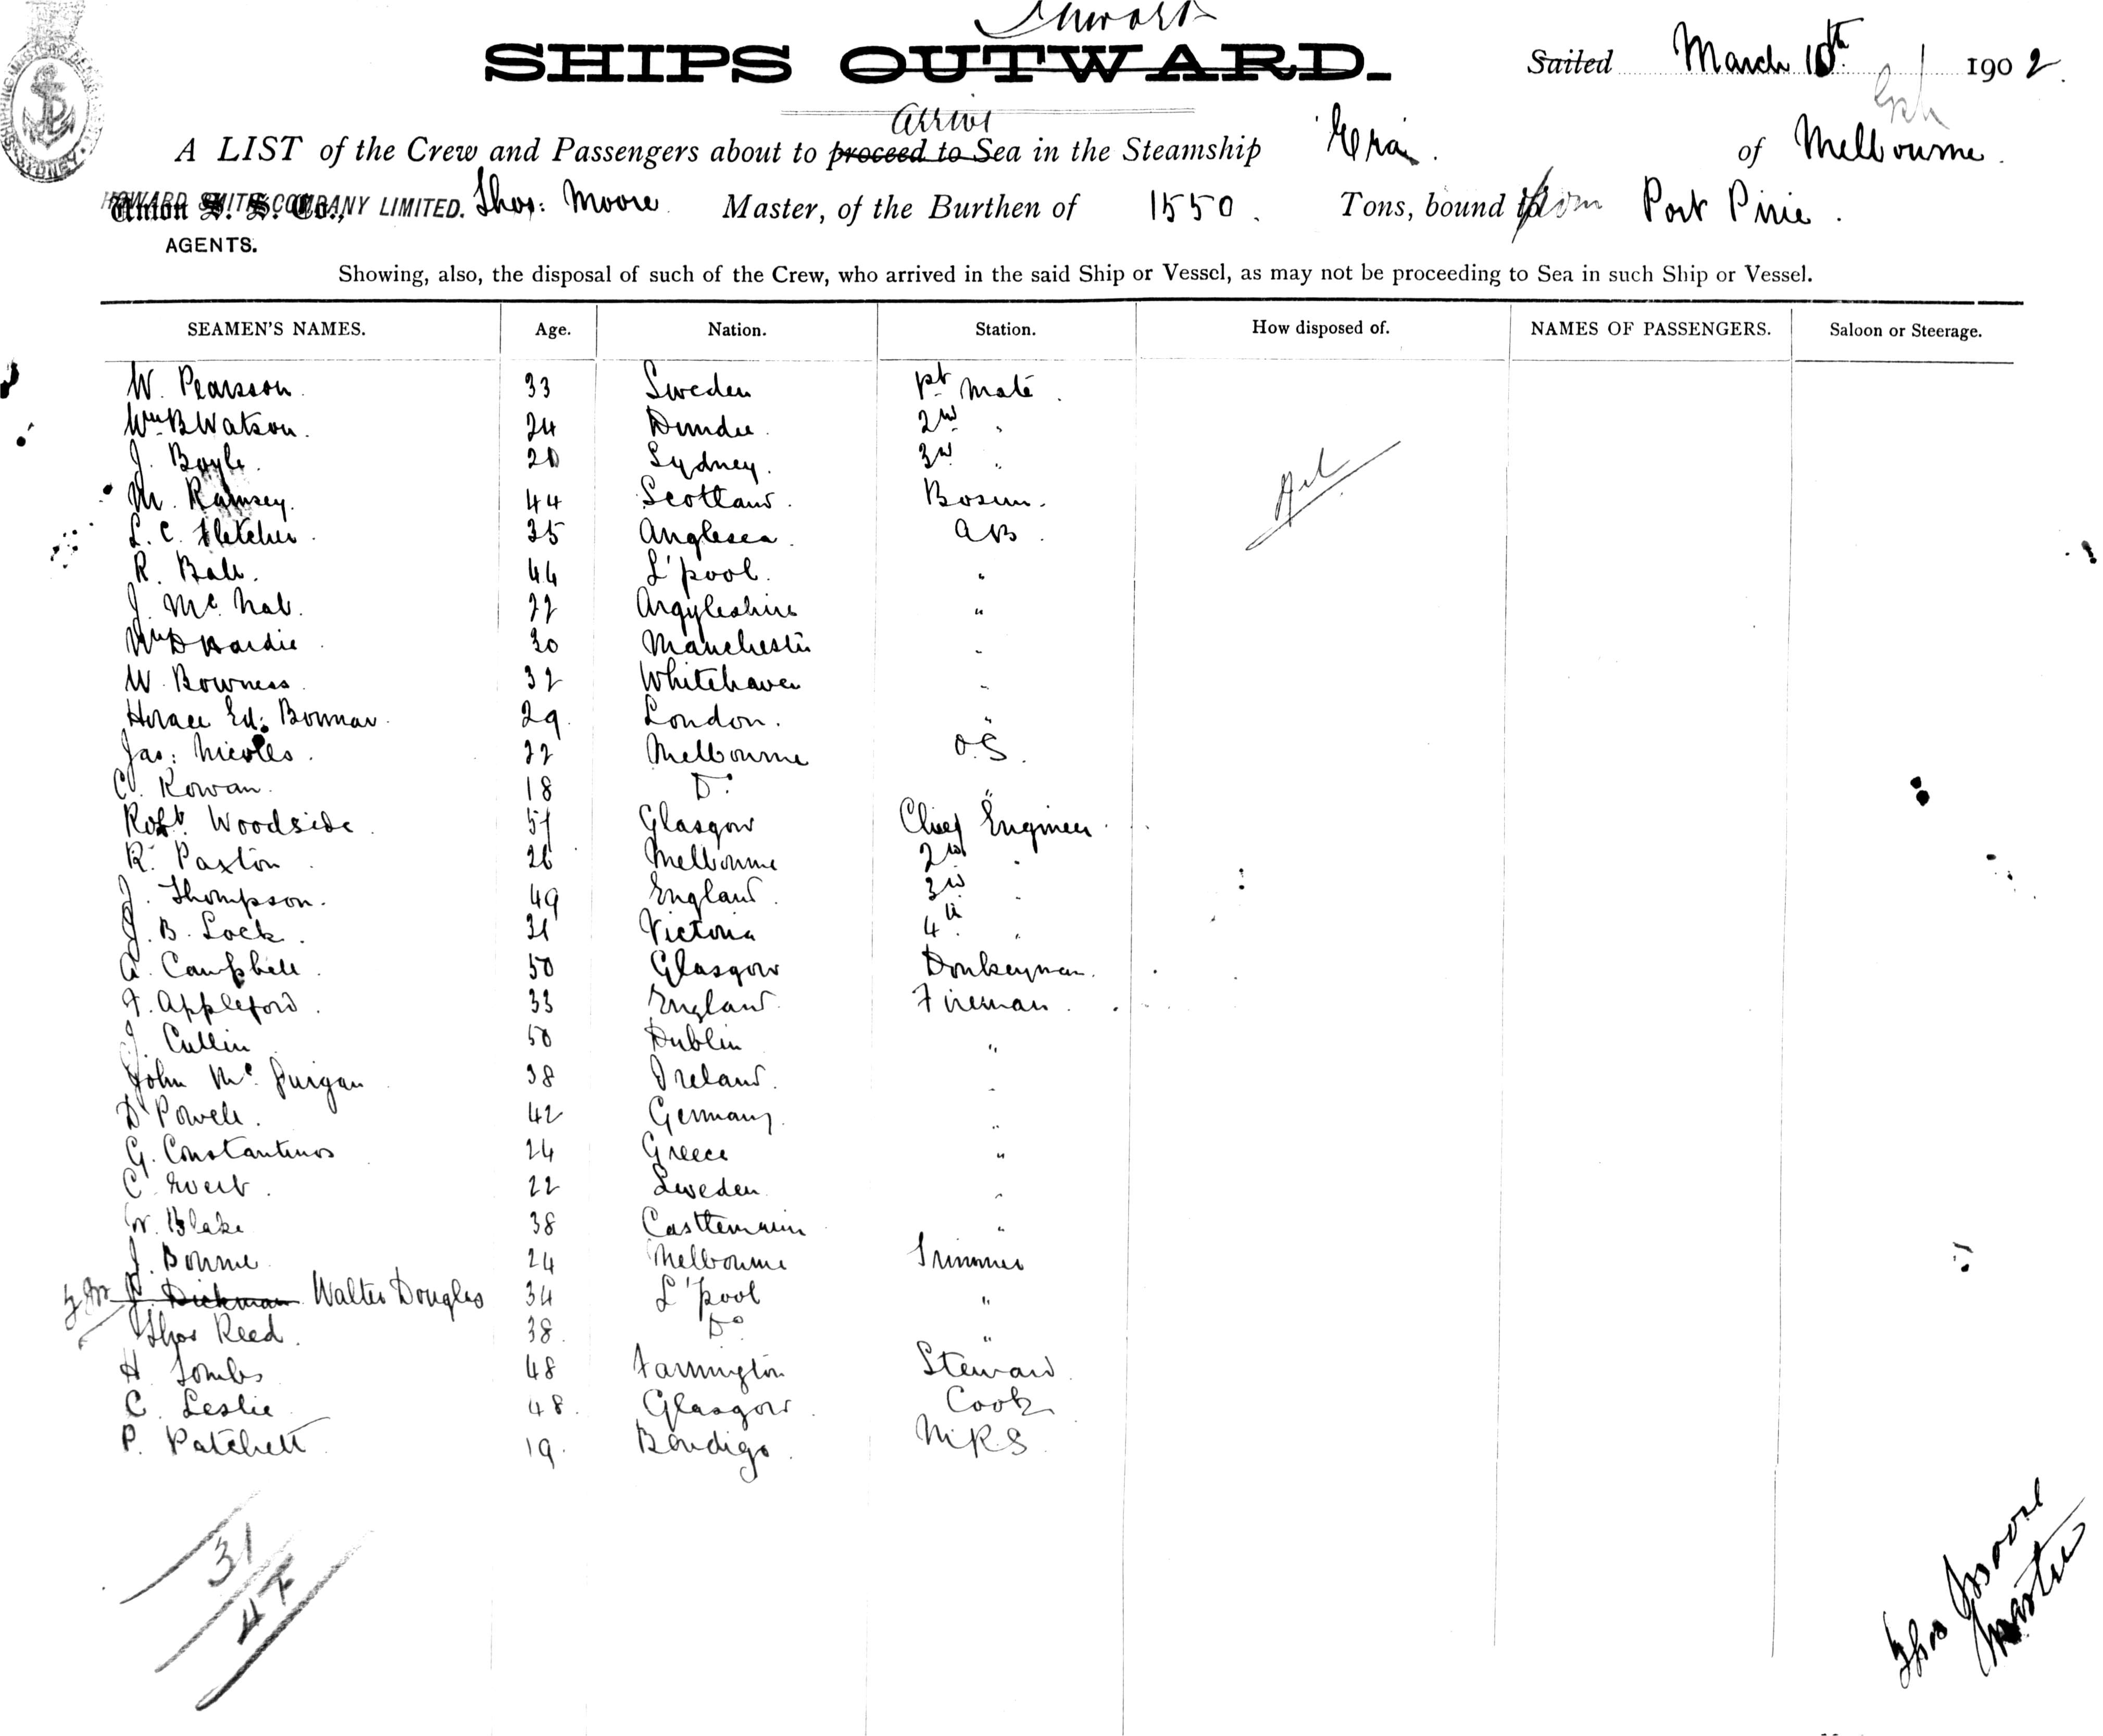 Inward
SHIPS OUTWARD.
Sailed March 10th 1902.
arrive
A LIST of the Crew and Passengers about to proceed to Sea in the Steamship Era. of Melbourne.
HOWARD SMITH COMPANY LIMITED. Thos: Moore Master, of the Burthen of 1550. Tons, bound from Port Pirie.
Union S. S. Co.,
AGENTS.
Showing, also, the disposal of such of the Crew, who arrived in the said Ship or Vessel, as may not be proceeding to Sea in such Ship or Vessel.
SEAMEN'S NAMES. Age. Nation. Station. How disposed of. NAMES OF PASSENGERS. Saloon or Steerage.
W. Pearsson. 33 Sweden 1st Mate.
Wm B Watson. 24 Dundee. 2nd "
J. Boyle. 20 Sydney. 3rd "
M. Ramsey. 44 Scotland. Bosun.
L. C. Fletcher. 35 Anglesea. AB.
R. Ball. 44 L'pool. "
J. Mc Nab. 22 Argyleshire "
Wm D Hardie. 30 Manchester "
W. Bowness. 32 Whitehaven "
Horace Ed: Bonnar. 29. London. "
Jas: Nicolls. 22 Melbourne O.S.
C. Rowan. 18 Do. "
Robt. Woodside. 51 Glasgow Chief Engineer.
R. Paxton 26 Melbourne 2nd "
J. Thompson. 49 England. 3rd "
J. B. Lock. 31 Victoria 4th "
A. Campbell. 50 Glasgow Donkeyman.
F. Appleford. 33 England. Fireman.
J. Cullin 50 Dublin "
John Mc Guigan 38 Ireland. "
D Powell. 42 Germany. "
G. Constantinos 24 Greece "
C. 22 Sweden "
W. Blake 38 Castlemain "
J. Bourne 24 Melbourne Trimmer
J. Dickman Walter Douglas 34 L'pool "
Thos Reed. 38. Do "
H Tombs 48 Farmington Steward
C. Leslie 48. Glasgow. Cook
P. Patchett 19. Bendigo. M.R.S.
31
47
Thos Moore
Master